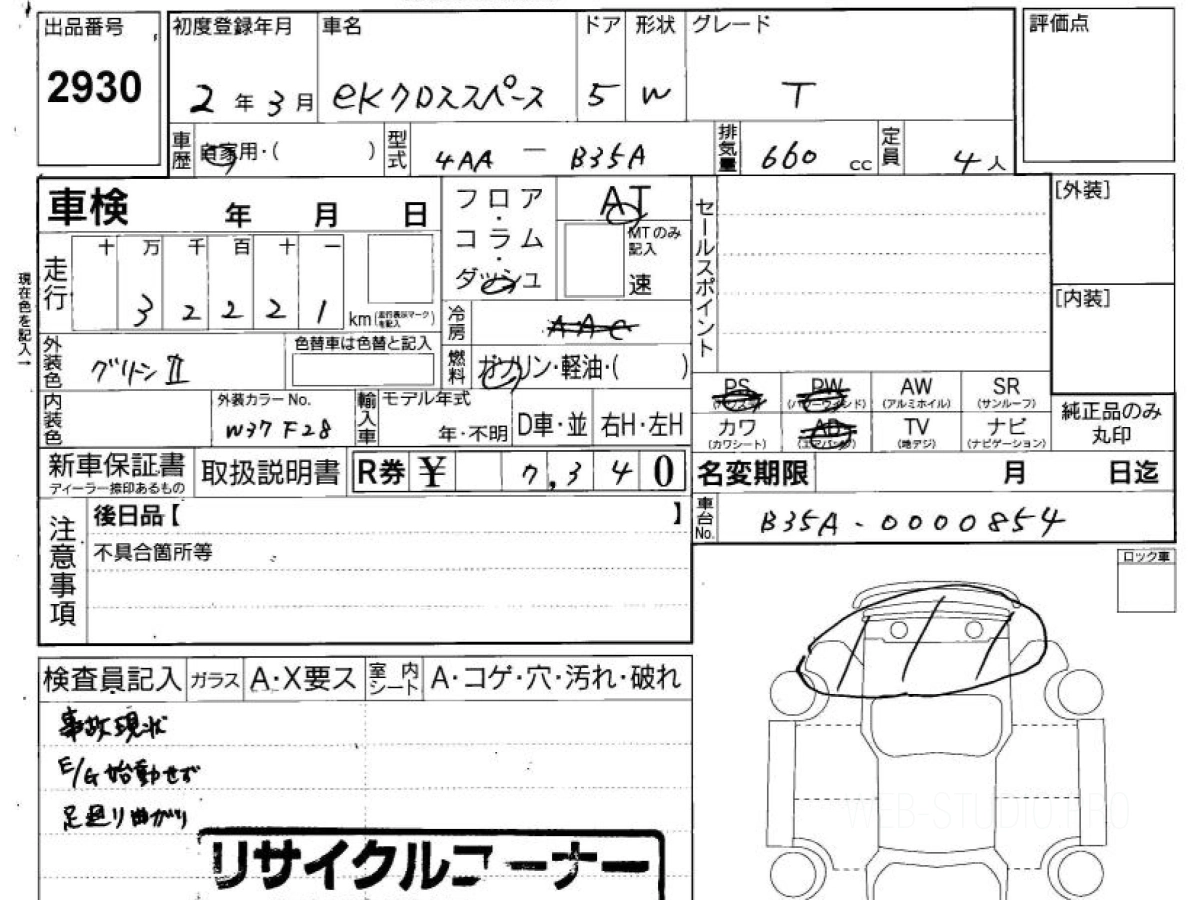 出品番号 初度登録年月 車名 ドア 形状 グレード 評価点
2930 2年3月 eKクロススペース 5 W T
車歴 自家用・( ) 型式 4AA - B35A 排気量 660 cc 定員 4人
車検 年 月 日 フロア・コラム・ダッシュ AT セールスポイント [外装]
MTのみ記入
速
走行 十 万 千 百 十 一
3 2 2 2 1 km (走行表示マークを記入)
現在色を記入→
[内装]
冷房 AAC
外装色 グリーンⅡ 色替車は色替と記入 燃料 ガソリン・軽油・( )
PS PW AW SR
(パワステ) (パワーウィンド) (アルミホイル) (サンルーフ)
内装色 外装カラーNo. 輸入車 モデル年式 純正品のみ丸印
W37 F28 年・不明 D車・並 右H・左H
カワ AB TV ナビ
(カワシート) (エアバッグ) (地デジ) (ナビゲーション)
新車保証書 取扱説明書 R券 ¥ 7,340 名変期限 月 日迄
ディーラー捺印あるもの
車台No. B35A-0000854
注意事項 後日品【 】
不具合箇所等
ロック車
検査員記入 ガラス A・X要ス 室内シート A・コゲ・穴・汚れ・破れ
事故現状
E/G始動せず
足廻り曲がり
WEB-STUDIO.PRO
リサイクルコーナー